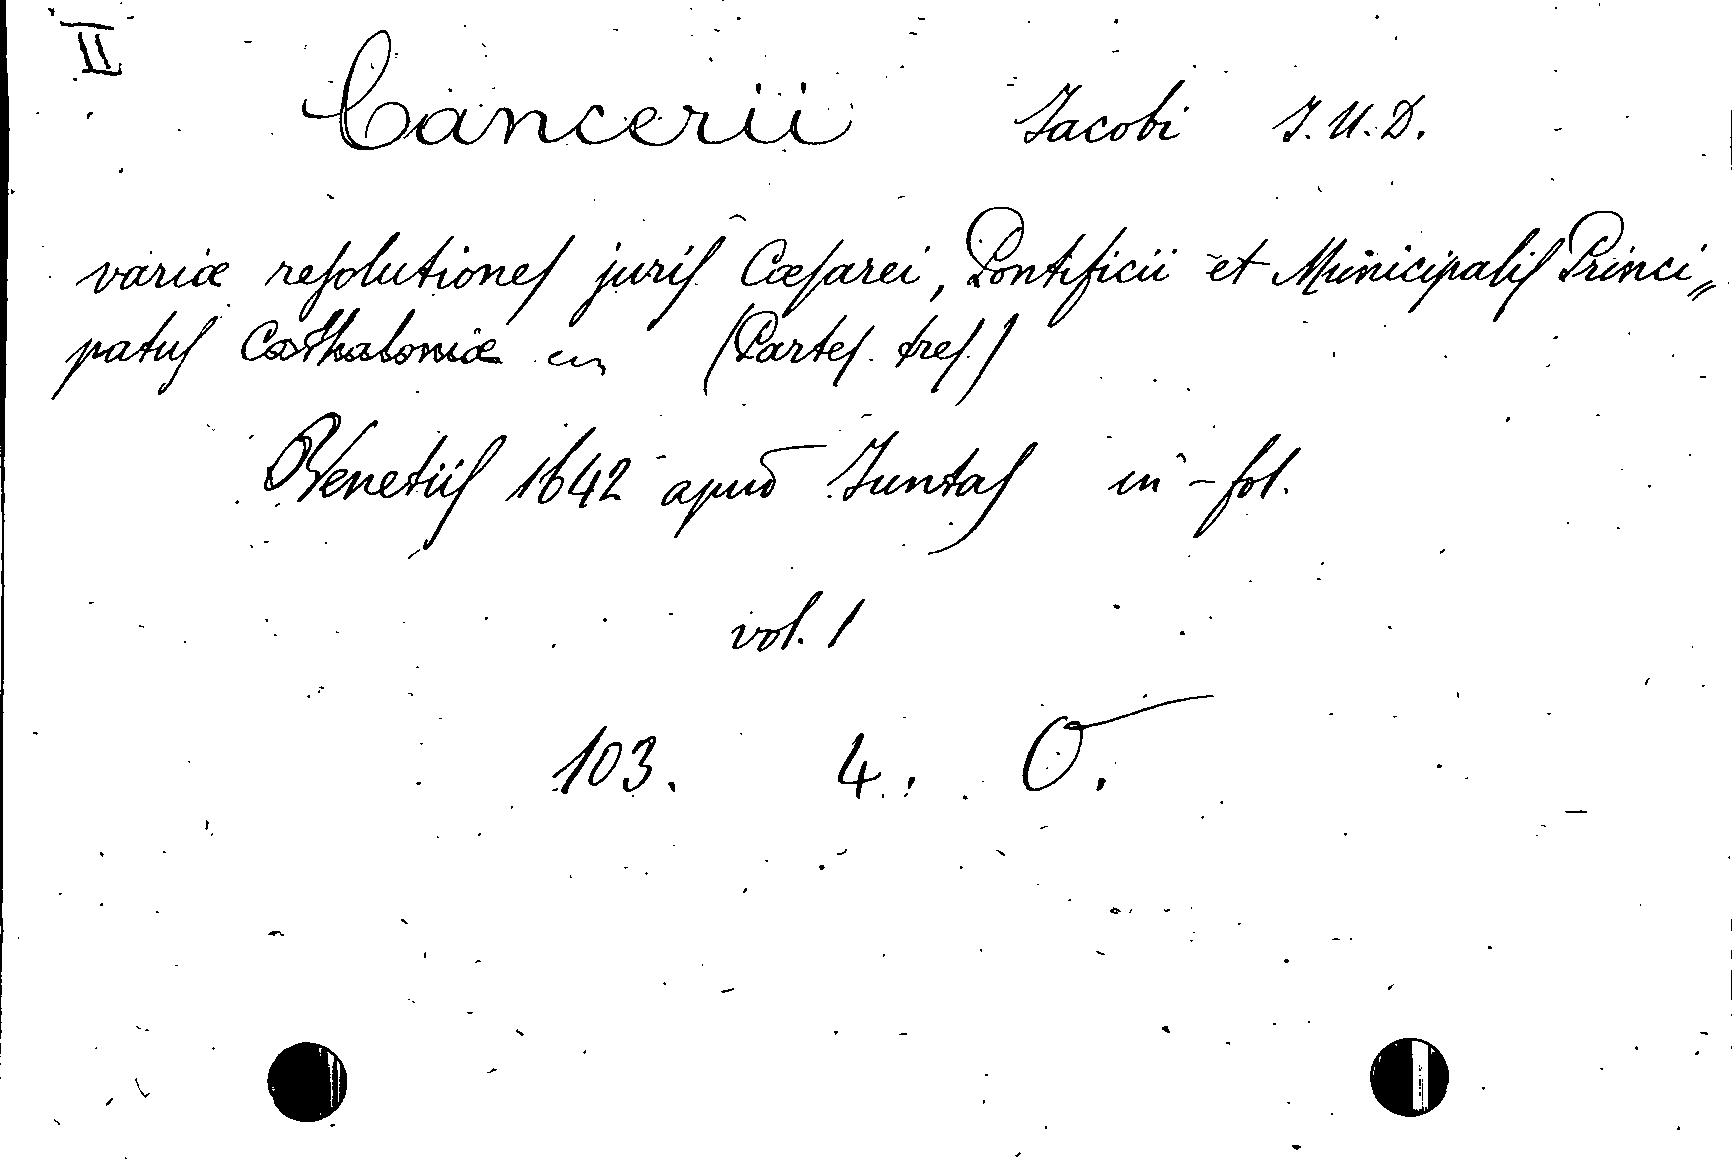 II
Cancerii Jacobi J. U. D.
variæ reſolutioneſ juriſ Cæſarei, Pontificii et Municipaliſ Princi„
patuſ Cathaloniæ (Parteſ treſ.)
Venetiiſ 1642 apud Juntaſ in-fol.
vol. 1
103. 4. O.